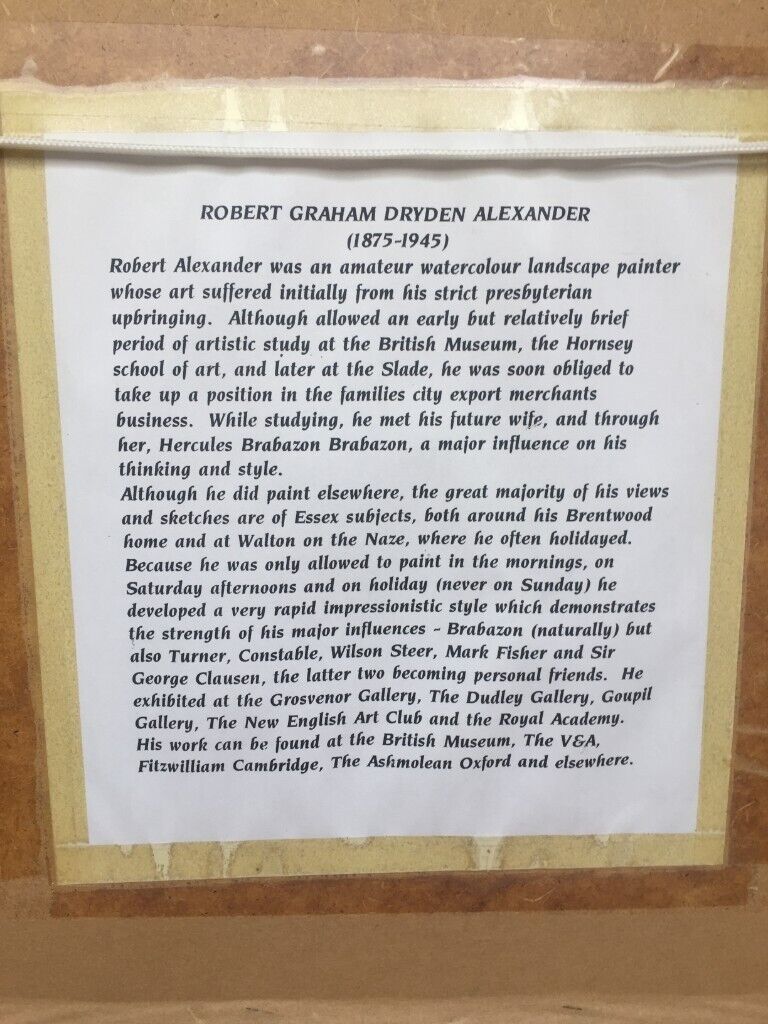 ROBERT GRAHAM DRYDEN ALEXANDER
(1875-1945)
Robert Alexander was an amateur watercolour landscape painter
whose art suffered initially from his strict presbyterian
upbringing. Although allowed an early but relatively brief
period of artistic study at the British Museum, the Hornsey
school of art, and later at the Slade, he was soon obliged to
take up a position in the families city export merchants
business. While studying, he met his future wife, and through
her, Hercules Brabazon Brabazon, a major influence on his
thinking and style.
Although he did paint elsewhere, the great majority of his views
and sketches are of Essex subjects, both around his Brentwood
home and at Walton on the Naze, where he often holidayed.
Because he was only allowed to paint in the mornings, on
Saturday afternoons and on holiday (never on Sunday) he
developed a very rapid impressionistic style which demonstrates
the strength of his major influences - Brabazon (naturally) but
also Turner, Constable, Wilson Steer, Mark Fisher and Sir
George Clausen, the latter two becoming personal friends. He
exhibited at the Grosvenor Gallery, The Dudley Gallery, Goupil
Gallery, The New English Art Club and the Royal Academy.
His work can be found at the British Museum, The V&A,
Fitzwilliam Cambridge, The Ashmolean Oxford and elsewhere.